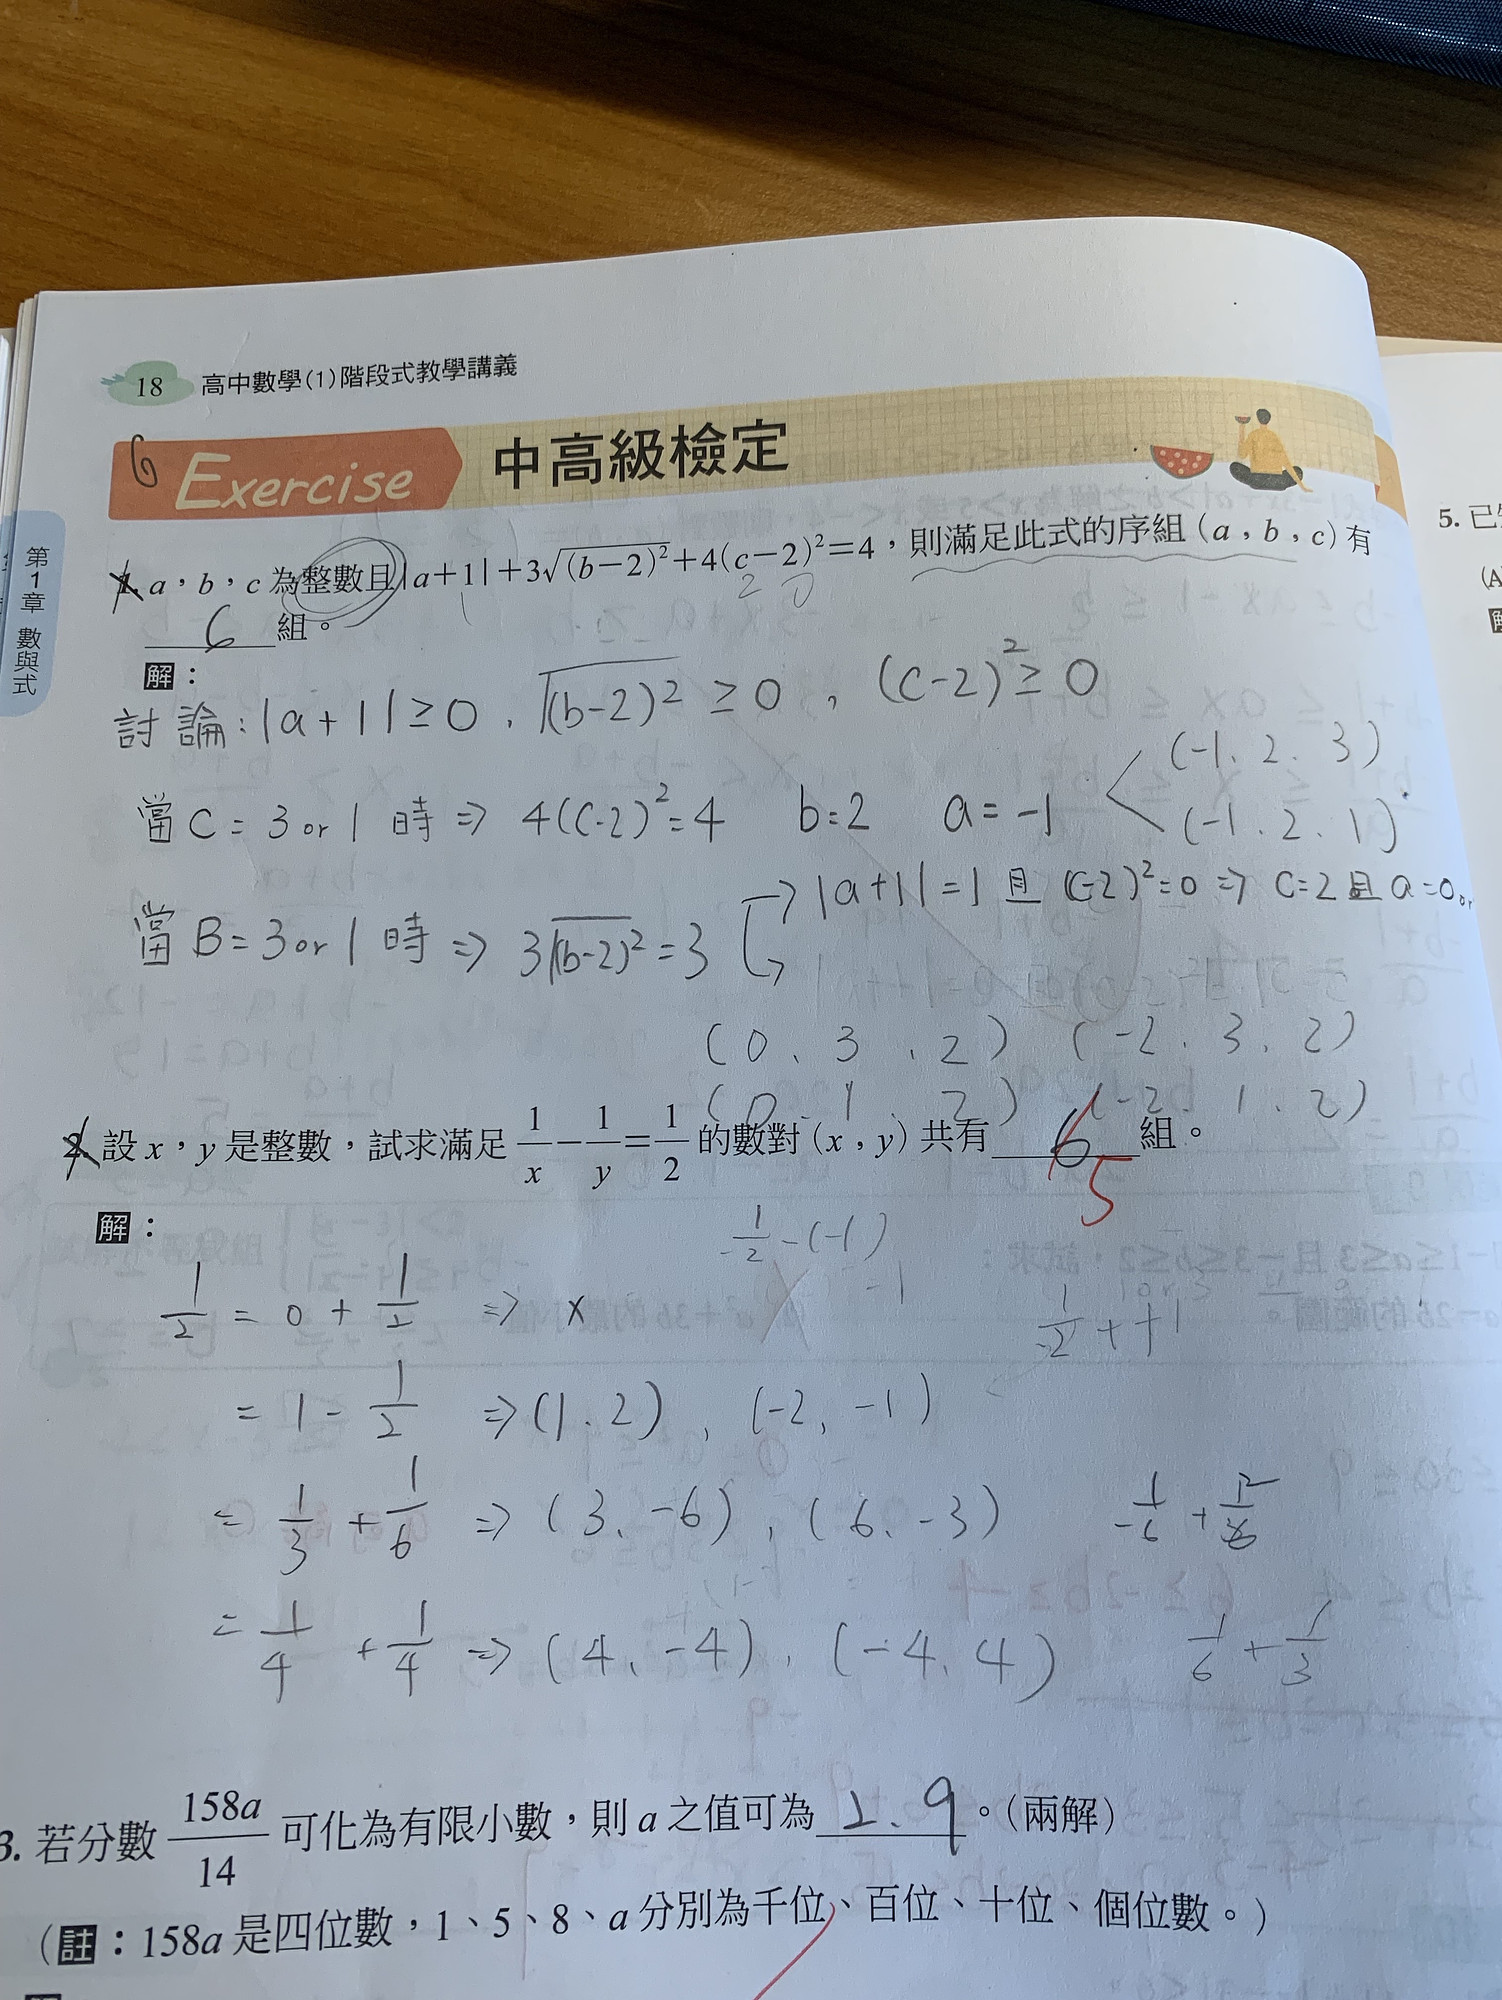 18 高中數學(1)階段式教學講義
6 Exercise 中高級檢定
第1章 數與式
1. a，b，c 為整數且|a+1|+3√(b−2)²+4(c−2)²=4，則滿足此式的序組(a，b，c)有
6 組。
2 0
解：
討論：|a+1|≥0 、√(b-2)² ≥0 、(c-2)²≥0
(-1、2、3)
當C=3 or 1 時 ⇒ 4(c-2)²=4 b=2 a=-1
(-1、2、1)
→|a+1|=1 且 (c-2)²=0 ⇒ c=2 且 a=0 or
當B=3 or 1 時 ⇒ 3√(b-2)²=3
(0、3、2) (-2、3、2)
(0、1、2) (-2、1、2)
2. 設 x，y 是整數，試求滿足 1/x − 1/y = 1/2 的數對(x，y)共有 6 組。
5
解：
1/-2 -(-1)
-1
1/2 = 0 + 1/2 ⇒ x
1/-2 + +1
= 1 - 1/2 ⇒ (1、2)、(-2、-1)
= 1/3 + 1/6 ⇒ (3、-6)、(6、-3)
= 1/4 + 1/4 ⇒ (4、-4)、(-4、4)
1/6 + 1/3
3. 若分數 158a/14 可化為有限小數，則 a 之值可為 2、9 。(兩解)
(註：158a 是四位數，1、5、8、a 分別為千位、百位、十位、個位數。)
5. 已
(A